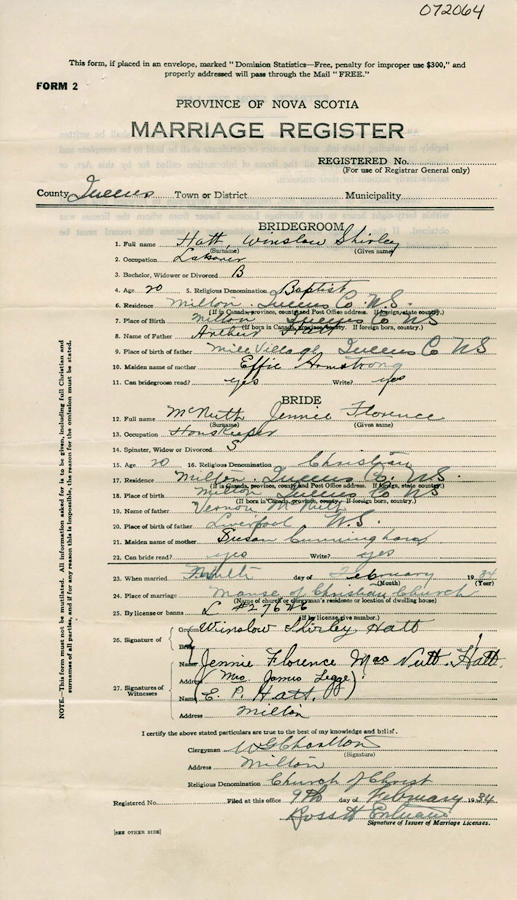 072064
This form, if placed in an envelope, marked "Dominion Statistics—Free, penalty for improper use $300," and
properly addressed will pass through the Mail "FREE."
FORM 2
PROVINCE OF NOVA SCOTIA
MARRIAGE REGISTER
REGISTERED No.
(For use of Registrar General only)
County Queens Town or District Municipality
BRIDEGROOM
1. Full name Hatt, Winslow Shirley
(Surname) (Given name)
2. Occupation Laborer
3. Bachelor, Widower or Divorced B
4. Age 20 5. Religious Denomination Baptist
6. Residence Milton Queens Co. N.S.
(If in Canada, province, county and Post Office address. If foreign, state country.)
7. Place of Birth Milton Queens Co N S
(If born in Canada, province, county. If foreign born, country.)
8. Name of Father Arthur Hatt
9. Place of birth of father Mill Village Queens Co N S
10. Maiden name of mother Effie Armstrong
11. Can bridegroom read? yes Write? yes
BRIDE
12. Full name McNutt Jennie Florence
(Surname) (Given name)
13. Occupation Housekeeper
14. Spinster, Widow or Divorced S
15. Age 20 16. Religious Denomination Christian
17. Residence Milton Queens Co. N.S.
(If in Canada, province, county and Post Office address. If foreign, state country.)
18. Place of birth Milton Queens Co N S
(If born in Canada, province, county. If foreign born, country.)
19. Name of father Vernon McNutt
20. Place of birth of father Liverpool N.S.
21. Maiden name of mother Susan Cunningham
22. Can bride read? yes Write? yes
23. When married day of February 1934
(Month) (Year)
24. Place of marriage Manse of Christian Church
(Name of church or clergyman's residence or location of dwelling house)
25. By license or banns L #27626
(If by license, give number.)
26. Signature of
Groom Winslow Shirley Hatt
Bride
Name Jennie Florence MacNutt. Hatt
Address (Mrs. James Legge)
27. Signatures of Witnesses
Name (E. P. Hatt.)
Address Milton
I certify the above stated particulars are true to the best of my knowledge and belief.
Clergyman W G Charlton
(Signature)
Address Milton
Religious Denomination Church of Christ
Registered No. Filed at this office 9th day of February 1934
Ross H
Signature of Issuer of Marriage Licenses.
[SEE OTHER SIDE]
NOTE.—This form must not be mutilated. All information asked for is to be given, including full Christian and
surnames of all parties, and if for any reason this is impossible, the reason for the omission must be stated.